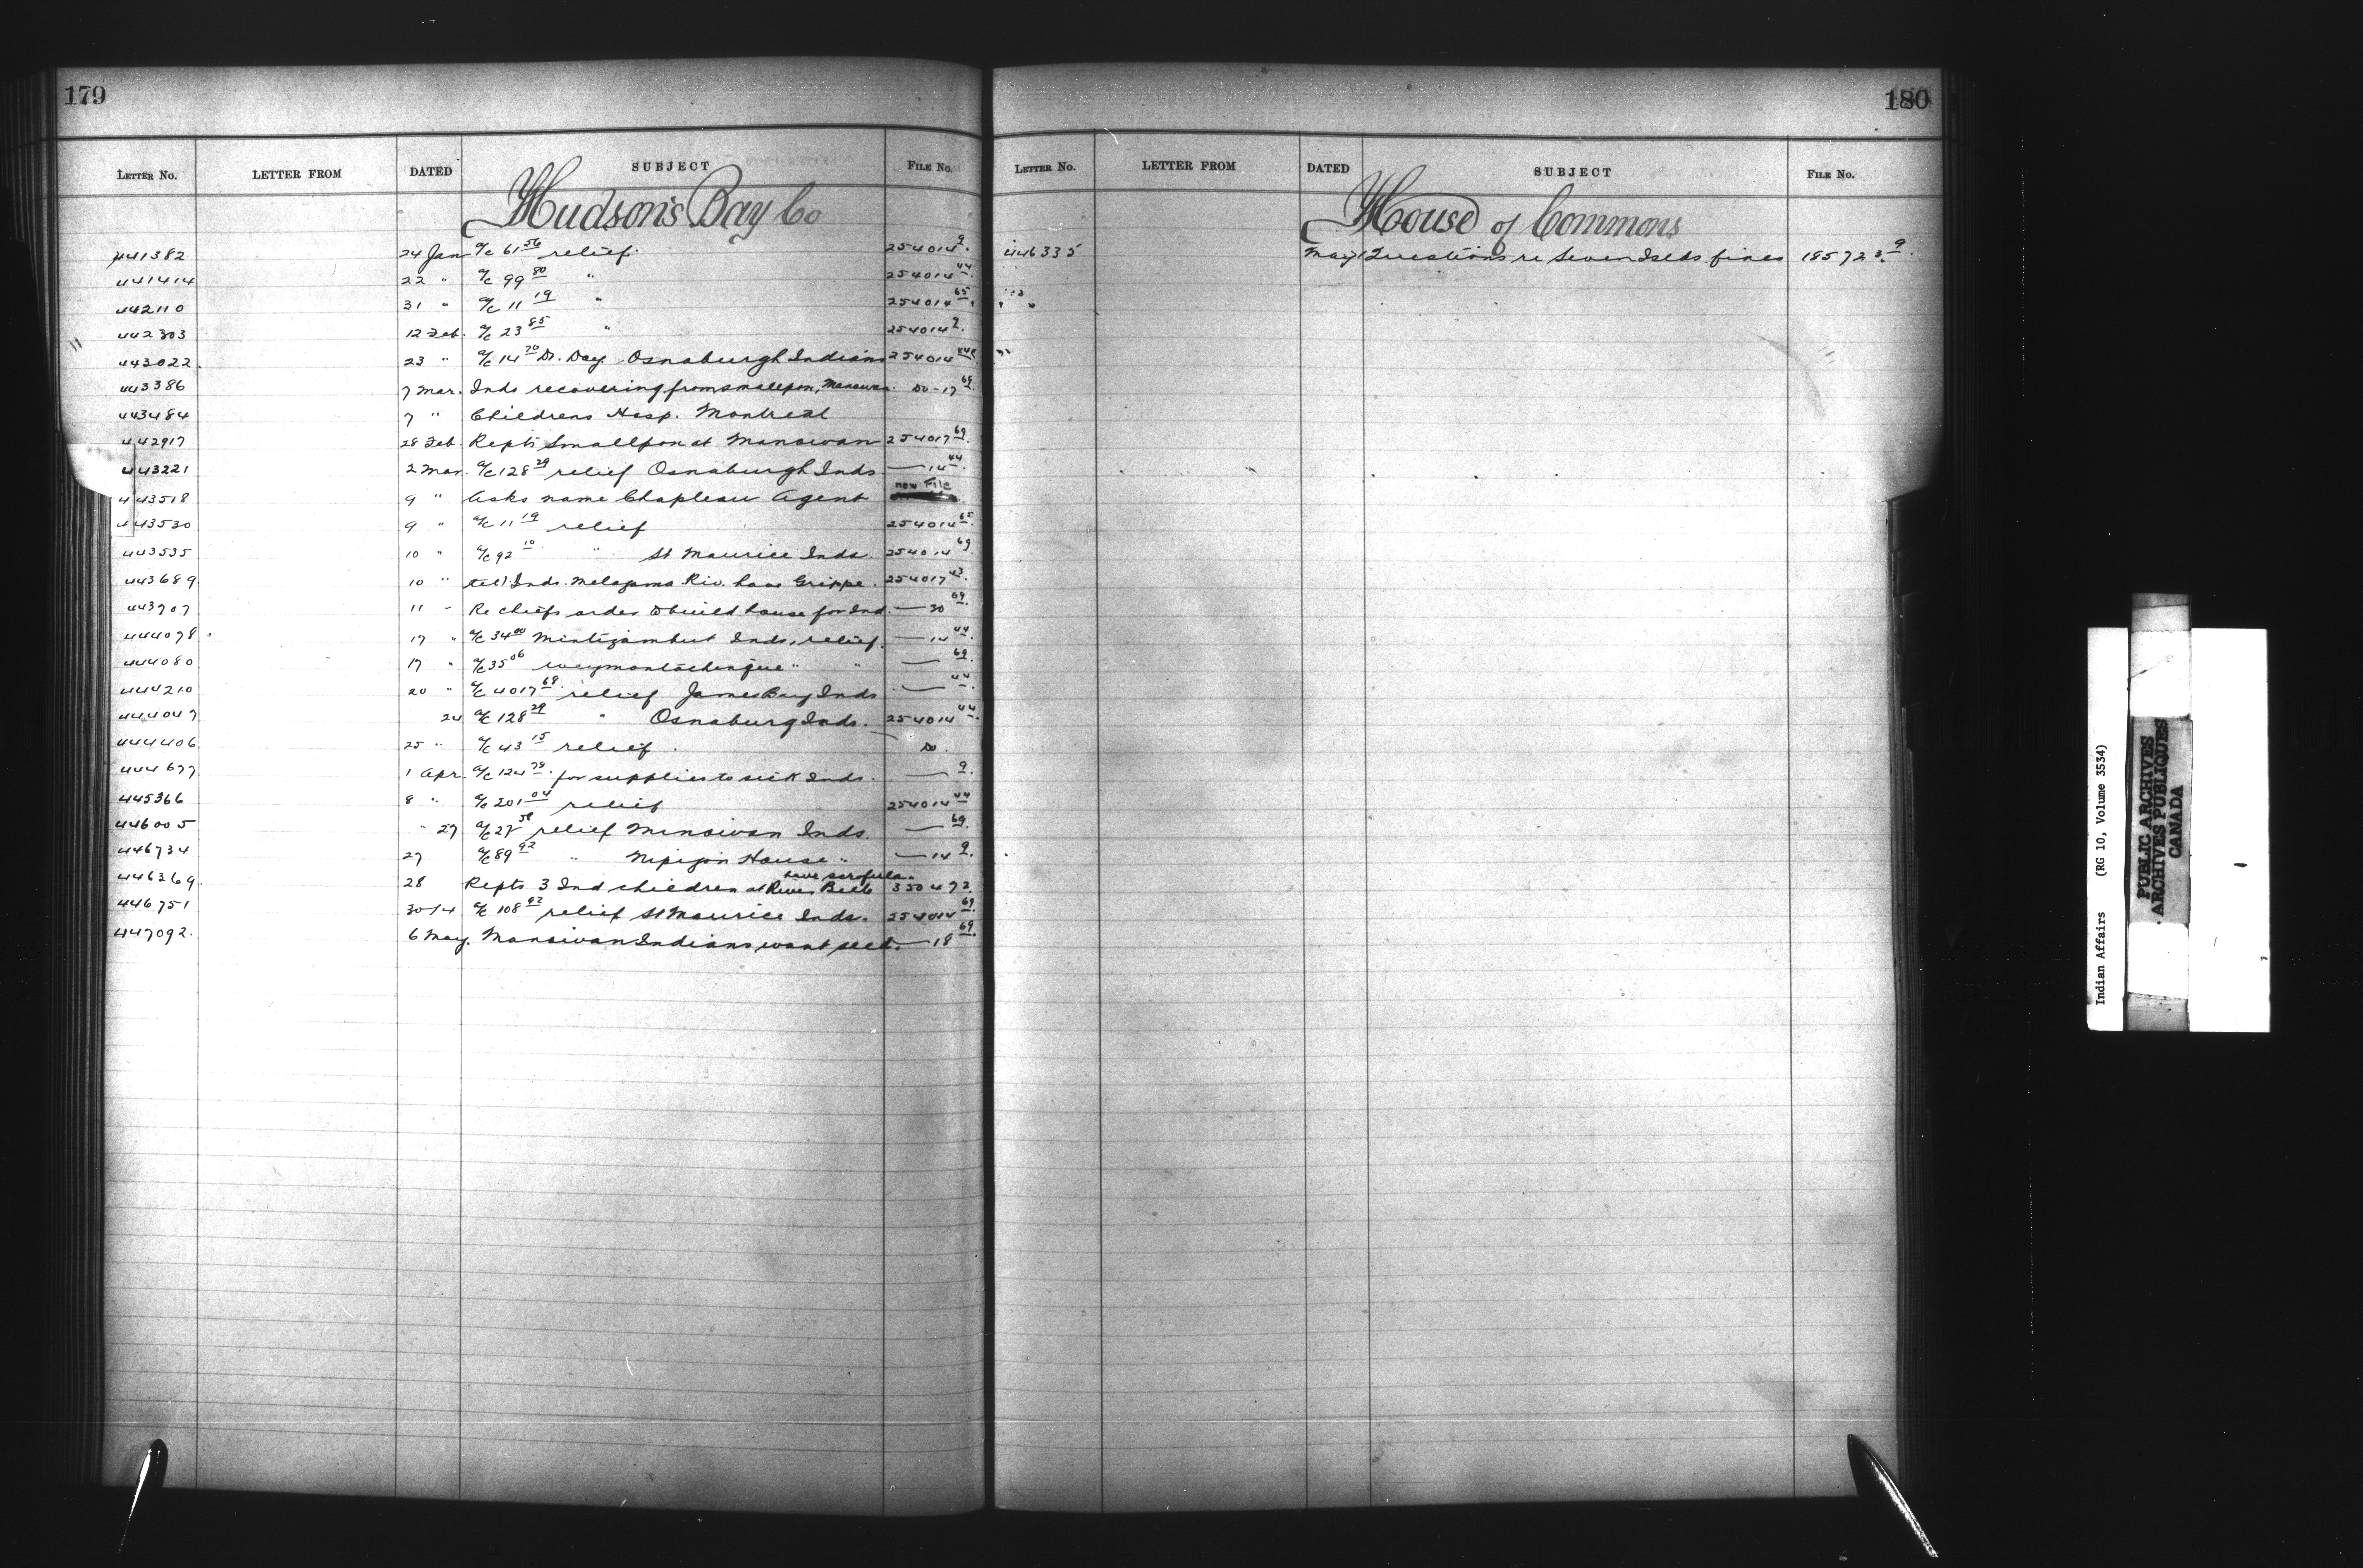 179
LETTER NO. LETTER FROM DATED SUBJECT FILE NO.
Hudson's Bay Co
441382 24 Jan a/c 61 56 relief. 254014 9.
441414 22 " a/c 99 80 " 254014 44.
442110 31 " a/c 11 19 " 254014 65.
442303 12 Feb. a/c 23 85 " 254014 9.
443022. 23 " a/c 14 70 Dr. Day. Osnaburgh Indians 254014 44.
443386 7 Mar. Inds recovering from smallpox, Manowan. Do-17 69.
443484 7 " Childrens Hosp. Montreal
442917 28 Feb. Repts Smallpox at Manowan 254017 69.
443221 2 Mar. a/c 128 29 relief Osnaburgh Inds — 14 44.
443518 9 " Asks name Chapleau Agent new File
443530 9 " a/c 11 19 relief 254014 65.
443535 10 " a/c 92 10 " St Maurice Inds. 254014 69.
443689. 10 " tel) Inds. Metagama Riv. have Grippe. 254017 43.
443707 11 " Re chiefs order to build house for Ind. — 30 69.
444078. 17 " a/c 34 00 Inds, relief. — 14 44.
444080 17 " a/c 35 06 Weymontachingue " " — 69.
444210 20 " a/c 4017 68. relief James Bay Inds — 44.
444047 24 a/c 128 29 " Osnaburg Inds. 254014 44.
444406 25 " a/c 43 15 relief. Do.
444677 1 Apr. a/c 124 79. for supplies to sick Inds. — 9.
445366 8 " a/c 201 04 relief 254014 44
446005 " 27 a/c 27 58 relief Manowan Inds. — 69.
446734 27 a/c 89 92 " Nipigon House " — 14 9.
have scrofula.
446369. 28 Repts 3 Ind children at River Bell 350472.
446751 30/4 a/c 108 92 relief St Maurice Inds. 254014 69.
447092. 6 May. Manowan Indians want seed. — 18 69.
180
LETTER NO. LETTER FROM DATED SUBJECT FILE NO.
House of Commons
446335 May 1 Questions re Seven Islds fines 185723. 9.
Indian Affairs (RG 10, Volume 3534)
PUBLIC ARCHIVES
ARCHIVES PUBLIQUES
CANADA